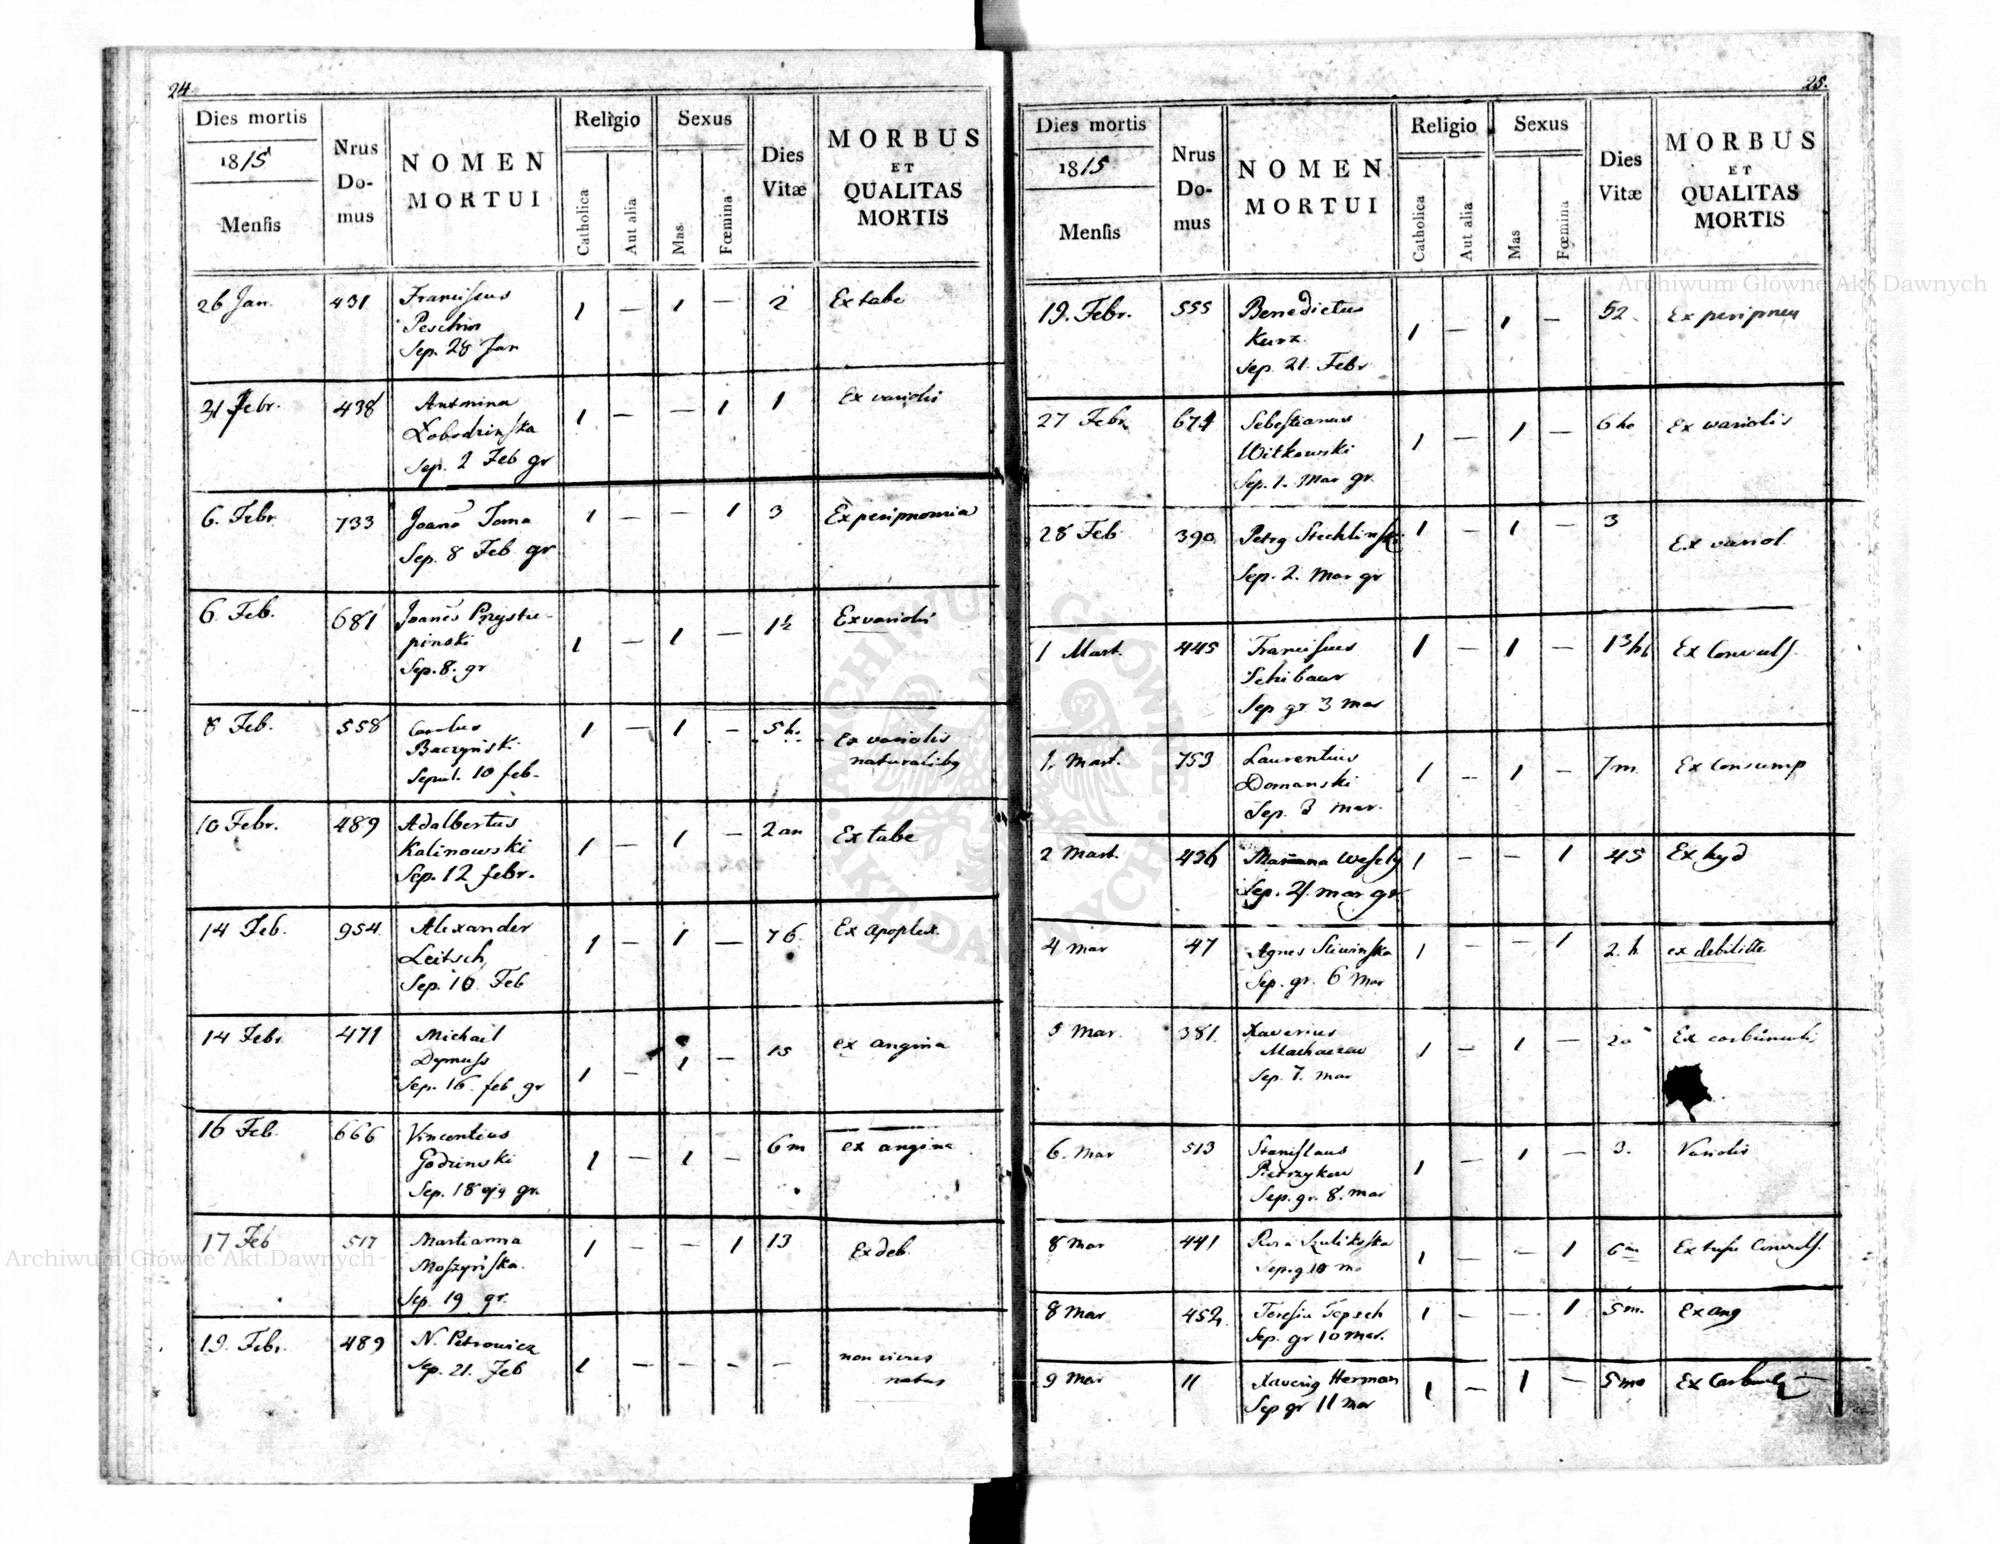 24.
Dies mortis
1815
Mensis
Nrus
Do-
mus
NOMEN
MORTUI
Religio
Catholica
Aut alia
Sexus
Mas.
Fœmina
Dies
Vitæ
MORBUS
ET
QUALITAS
MORTIS
26 Jan. 431 Franciscus 1 — 1 — 2 Ex tabe
Peschin
Sep. 28 Jan
Febr. 438 Antonina 1 — — 1 1 Ex variolis
Łobodzinska
Sep. 2 Feb gr
6. Febr. 733 Joana Toma 1 — — 1 3 Ex peripnomia
Sep. 8 Feb gr
6 Feb. 681 Joanes Przystu- 1 — 1 — 1½ Ex variolis
pinski
Sep. 8. gr
8 Feb. 558 Carolus 1 — 1 — 5 h. Ex variolis
Baczyński naturalibq
Sepul. 10 feb.
10 Febr. 489 Adalbertus 1 — 1 — 2 an Ex tabe
Kalinowski
Sep. 12 febr.
14 Feb. 954 Alexander 1 — 1 — 76. Ex apoplex.
Leitsch
Sep. 16 Feb
14 Febr 471 Michail 1 — 1 — 15 ex angina
Dymuss
Sep. 16. feb gr
16 Feb. 666 Vincentius 1 — 1 — 6 m ex angina
Godzinski
Sep. 18 gr.
17 Feb 517 Martianna 1 — — 1 13 Ex deb.
Moszyńska.
Sep. 19 gr.
19. Febr. 489 N. Petrowicz 1 — — — — non vivus
Sep. 21. Feb natus
25.
Dies mortis
1815
Mensis
Nrus
Do-
mus
NOMEN
MORTUI
Religio
Catholica
Aut alia
Sexus
Mas
Fœmina
Dies
Vitæ
MORBUS
ET
QUALITAS
MORTIS
19. Febr. 555 Benedictus 1 — 1 — 52. Ex peripneu
Kurz.
Sep. 21. Febr
27 Febr. 674 Sebestianus 1 — 1 — 6 ho Ex variolis
Witkowski
Sep. 1. Mar gr.
28 Feb 390. Petrq Stechlinski 1 — 1 — 3 Ex variol.
Sep. 2. Mar gr
1 Mart. 445 Franciscus 1 — 1 — Ex Convuls.
Schibaur
Sep gr 3 mar
1. Mart. 753 Laurentius 1 — 1 — 7 m. Ex Consump
Domanski
Sep. 3 mar.
2 Mart. 436 Mariana Wesely 1 — — 1 45 Ex hyd
Sep. 4. mar gr.
4 mar 47 Agnes Sliwinska 1 — — 1 2. h ex debilitte
Sep. gr. 6 Mar
5 Mar. 381. Xaverius 1 — 1 — Ex carbuncul
Sep. 7. Mar
6. Mar 513 Stanislaus 1 — 1 — 3. Variolis
Pietrzykow
Sep. gr. 8. mar
8 Mar 441 Rosa 1 — — 1 6 m Ex tussi Convuls.
Sep. g 10 m.
8 Mar 452. Teresia Tepsch 1 — — 1 5 m. Ex ang
Sep. gr 10 Mar.
9 Mar 11 Xaverig Herman 1 — 1 — 5 mo Ex Carbuncl
Sep gr 11 Mar
Archiwum Główne Akt Dawnych
Archiwum Główne Akt Dawnych
ARCHIWUM GŁÓWNE
AKT DAWNYCH